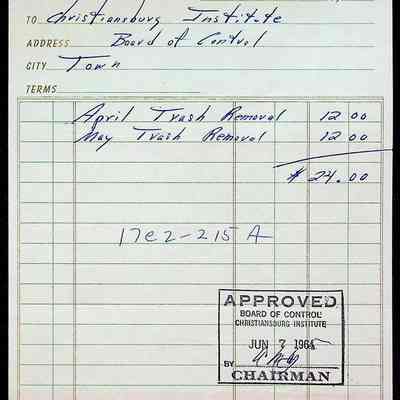 TO Christiansburg Institute
ADDRESS Board of Control
CITY Town
TERMS
April Trash Removal 12 00
May Trash Removal 12 00
$ 24.00
17e2-215 A
APPROVED
BOARD OF CONTROL
CHRISTIANSBURG INSTITUTE
JUN 7 1965
BY
CHAIRMAN